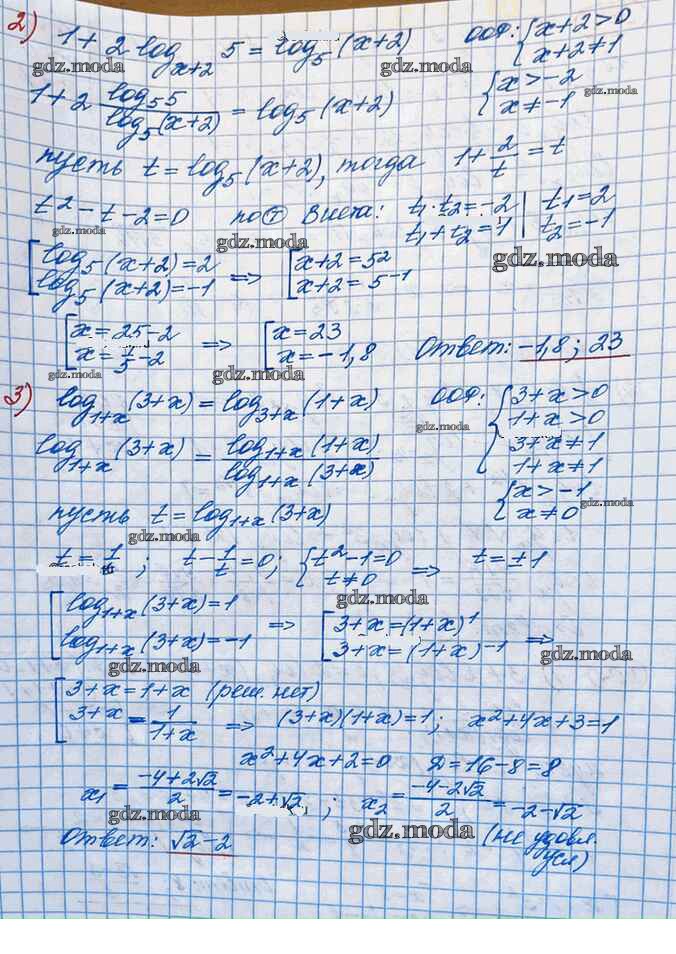 2) 1 + 2 log_{x+2} 5 = log₅ (x+2) ООФ: { x+2 > 0
x+2 ≠ 1
gdz.moda gdz.moda gdz.moda
1 + 2 log₅5 / log₅(x+2) = log₅ (x+2) { x > -2
x ≠ -1
пусть t = log₅ (x+2), тогда 1 + 2/t = t
t² - t - 2 = 0 по Т Виета: t₁ · t₂ = -2 | t₁ = 2
t₁ + t₂ = 1 | t₂ = -1
gdz.moda gdz.moda gdz.moda
[ log₅ (x+2) = 2
log₅ (x+2) = -1 => [ x+2 = 5²
x+2 = 5⁻¹
[ x = 25 - 2
x = 1/5 - 2 => [ x = 23
x = -1,8 Ответ: -1,8 ; 23
gdz.moda gdz.moda gdz.moda
3) log_{1+x} (3+x) = log_{3+x} (1+x) ООФ: { 3+x > 0
1+x > 0
3+x ≠ 1
1+x ≠ 1
gdz.moda
log_{1+x} (3+x) = log_{1+x} (1+x) / log_{1+x} (3+x)
{ x > -1
x ≠ 0
gdz.moda
пусть t = log_{1+x} (3+x)
gdz.moda
t = 1/t ; t - 1/t = 0; { t² - 1 = 0
t ≠ 0 => t = ± 1
gdz.moda
[ log_{1+x} (3+x) = 1
log_{1+x} (3+x) = -1 => [ 3+x = (1+x)¹
3+x = (1+x)⁻¹ =>
gdz.moda gdz.moda
[ 3+x = 1+x (реш. нет)
3+x = 1/(1+x) => (3+x)(1+x) = 1; x² + 4x + 3 = 1
x² + 4x + 2 = 0 D = 16 - 8 = 8
x₁ = (-4 + 2√2)/2 = -2 + √2 ; x₂ = (-4 - 2√2)/2 = -2 - √2
gdz.moda gdz.moda
(не удовл.
усл)
Ответ: √2 - 2